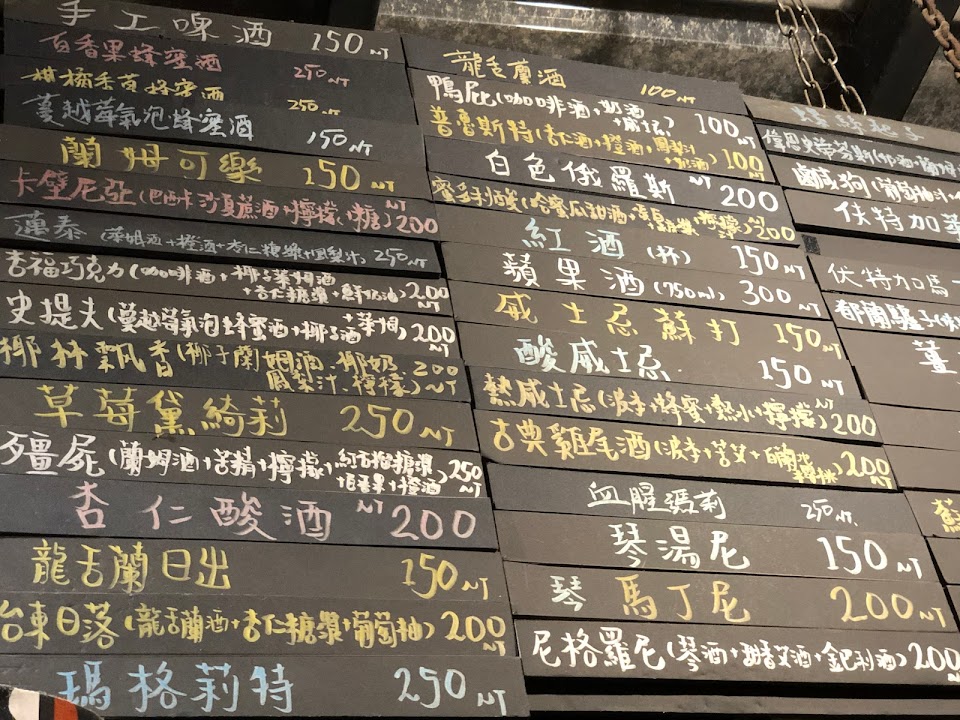 手工啤酒 150 NT
百香果蜂蜜酒 250 NT
柑橘香草蜂蜜酒 250 NT
蔓越莓氣泡蜂蜜酒 150 NT
蘭姆可樂 150 NT
卡璧尼亞(巴西卡沙夏蔗酒+檸檬+糖) 200 NT
邁泰(蘭姆酒+橙酒+杏仁糖漿+鳳梨汁) 250 NT
幸福巧克力(咖啡酒+椰子蘭姆酒
+杏仁糖漿+鮮奶油) 200 NT
史提夫(蔓越莓氣泡蜂蜜酒+椰子酒+萊姆) 200 NT
椰林飄香(椰子蘭姆酒.椰奶.
鳳梨汁.檸檬) 200 NT
草莓黛綺莉 250 NT
殭屍(蘭姆酒+苦精+檸檬+紅石榴糖漿
+百香果+橙酒) 250 NT
杏仁酸酒 NT 200
龍舌蘭日出 150 NT
台東日落(龍舌蘭酒+杏仁糖漿+葡萄柚) 200 NT
瑪格莉特 250 NT
龍舌蘭酒 100 NT
鴨屁(咖啡酒+奶酒
+ ) 100 NT
普魯斯特(杏仁酒+橙酒+鳳梨汁
+奶酒) 100 NT
白色俄羅斯 NT 200
蜜多丽酸(哈蜜瓜甜酒+ +檸檬) 200
紅酒(杯) 150 NT
蘋果酒(750ml) 300 NT
威士忌蘇打 150 NT
酸威士忌 150 NT
熱威士忌(波本+蜂蜜+熱水+檸檬) NT 200
古典雞尾酒(波本+苦艾+白蘭地
+櫻桃) 200 NT
血腥瑪莉 250 NT.
琴湯尼 150 NT
琴馬丁尼 200 NT
尼格羅尼(琴酒+甜香艾酒+金巴利酒) 200 NT
鹹狗(葡萄柚汁
伏特加萊
伏特加馬
都蘭騾子(伏
薑
蘇